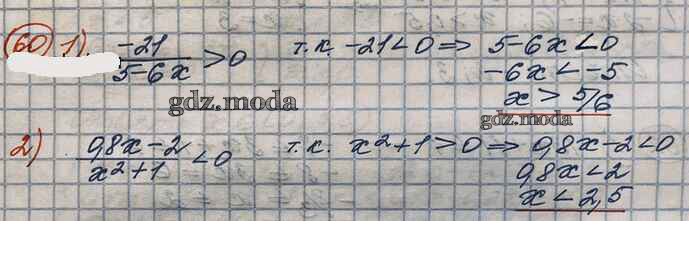 60) 1). -21/(5-6x) > 0 т.к. -21<0 ⇒ 5-6x<0
-6x<-5
x > 5/6
gdz.moda
gdz.moda
2) (0,8x-2)/(x²+1) < 0 т.к. x²+1>0 ⇒ 0,8x-2<0
0,8x<2
x<2,5